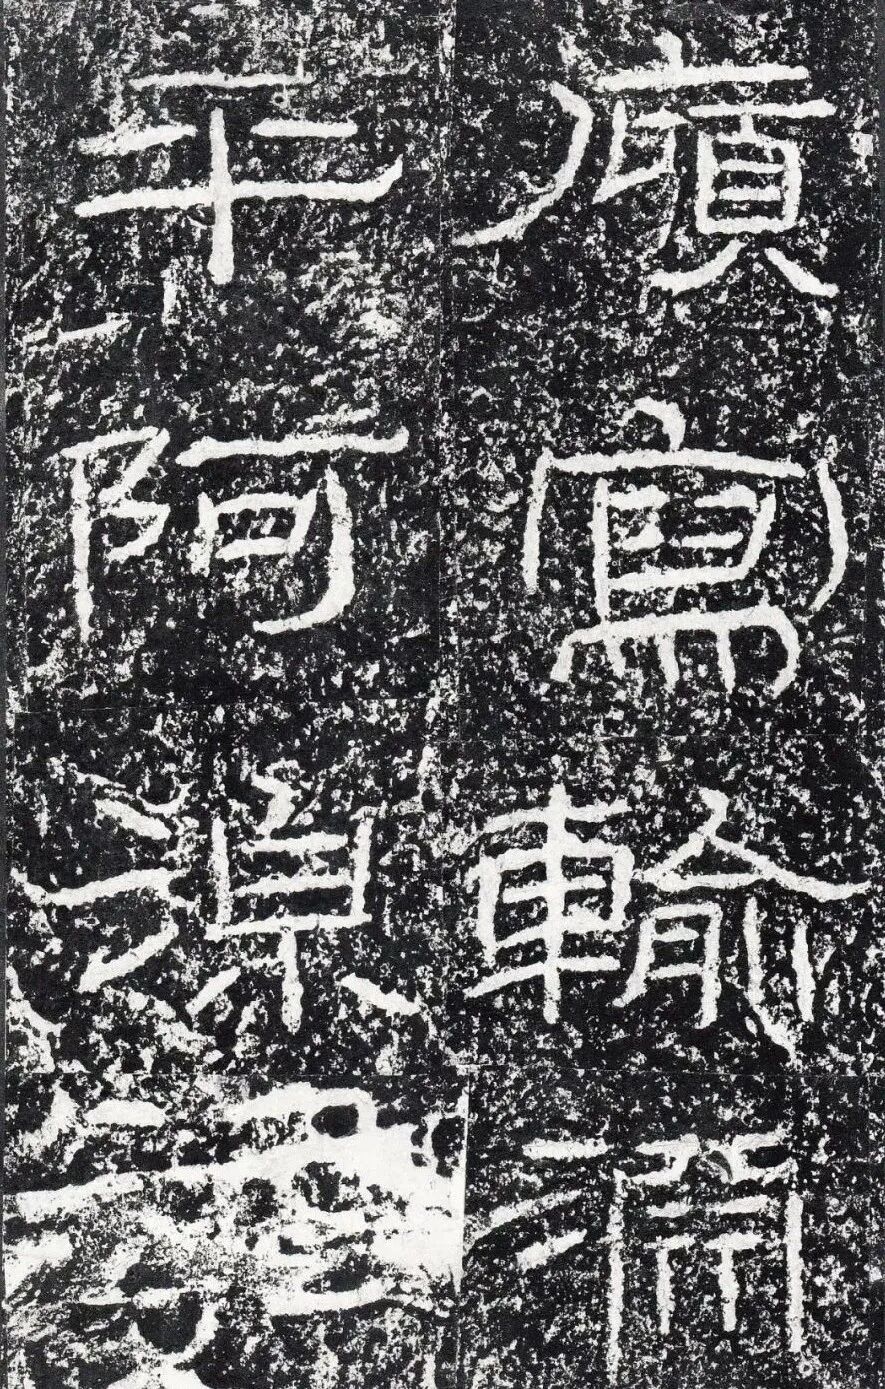 廎寫輸淵
平阿湶